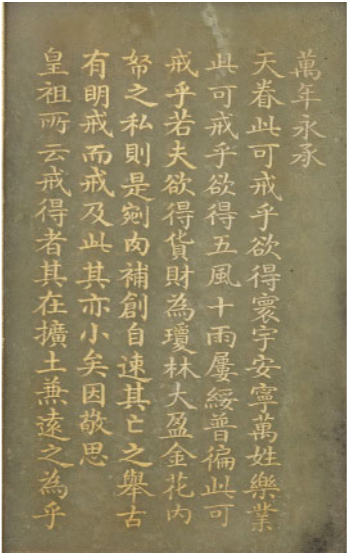 萬年永承
天眷此可戒乎欲得寰宇安寧萬姓樂業
此可戒乎欲得五風十雨屢綏普徧此可
戒乎若夫欲得貨財為瓊林大盈金花内
帑之私則是剜肉補創自速其亡之舉古
有明戒而戒及此其亦小矣因敬思
皇祖所云戒得者其在擴土兼遠之為乎